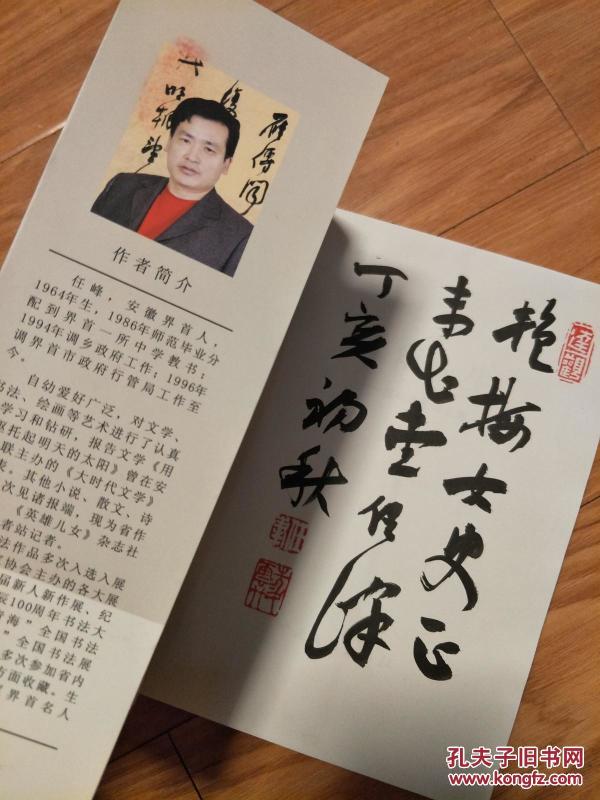 作者简介
任峰，安徽界首人，
1964年生，1986年师范毕业分
配到界首一所中学教书；
1994年调乡政府工作；1996年
调界首市政府行管局工作至
今。
自幼爱好广泛，对文学、
书法、绘画等艺术进行了认真
学习和钻研，报告文学《用
托起明天的太阳》曾在安
联主办的《大时代文学》
其他小说、散文、诗
次见诸报端，现为省作
《英雄儿女》杂志社
者站记者。
法作品多次入选入展
协会主办的各大展
届新人新作展、纪
辰100周年书法大
海”全国书法
”全国书法展
多次参加省内
方面收藏。生
界首名人
艳梅女史正
堂任
丁亥初秋
孔夫子旧书网
www.kongfz.com